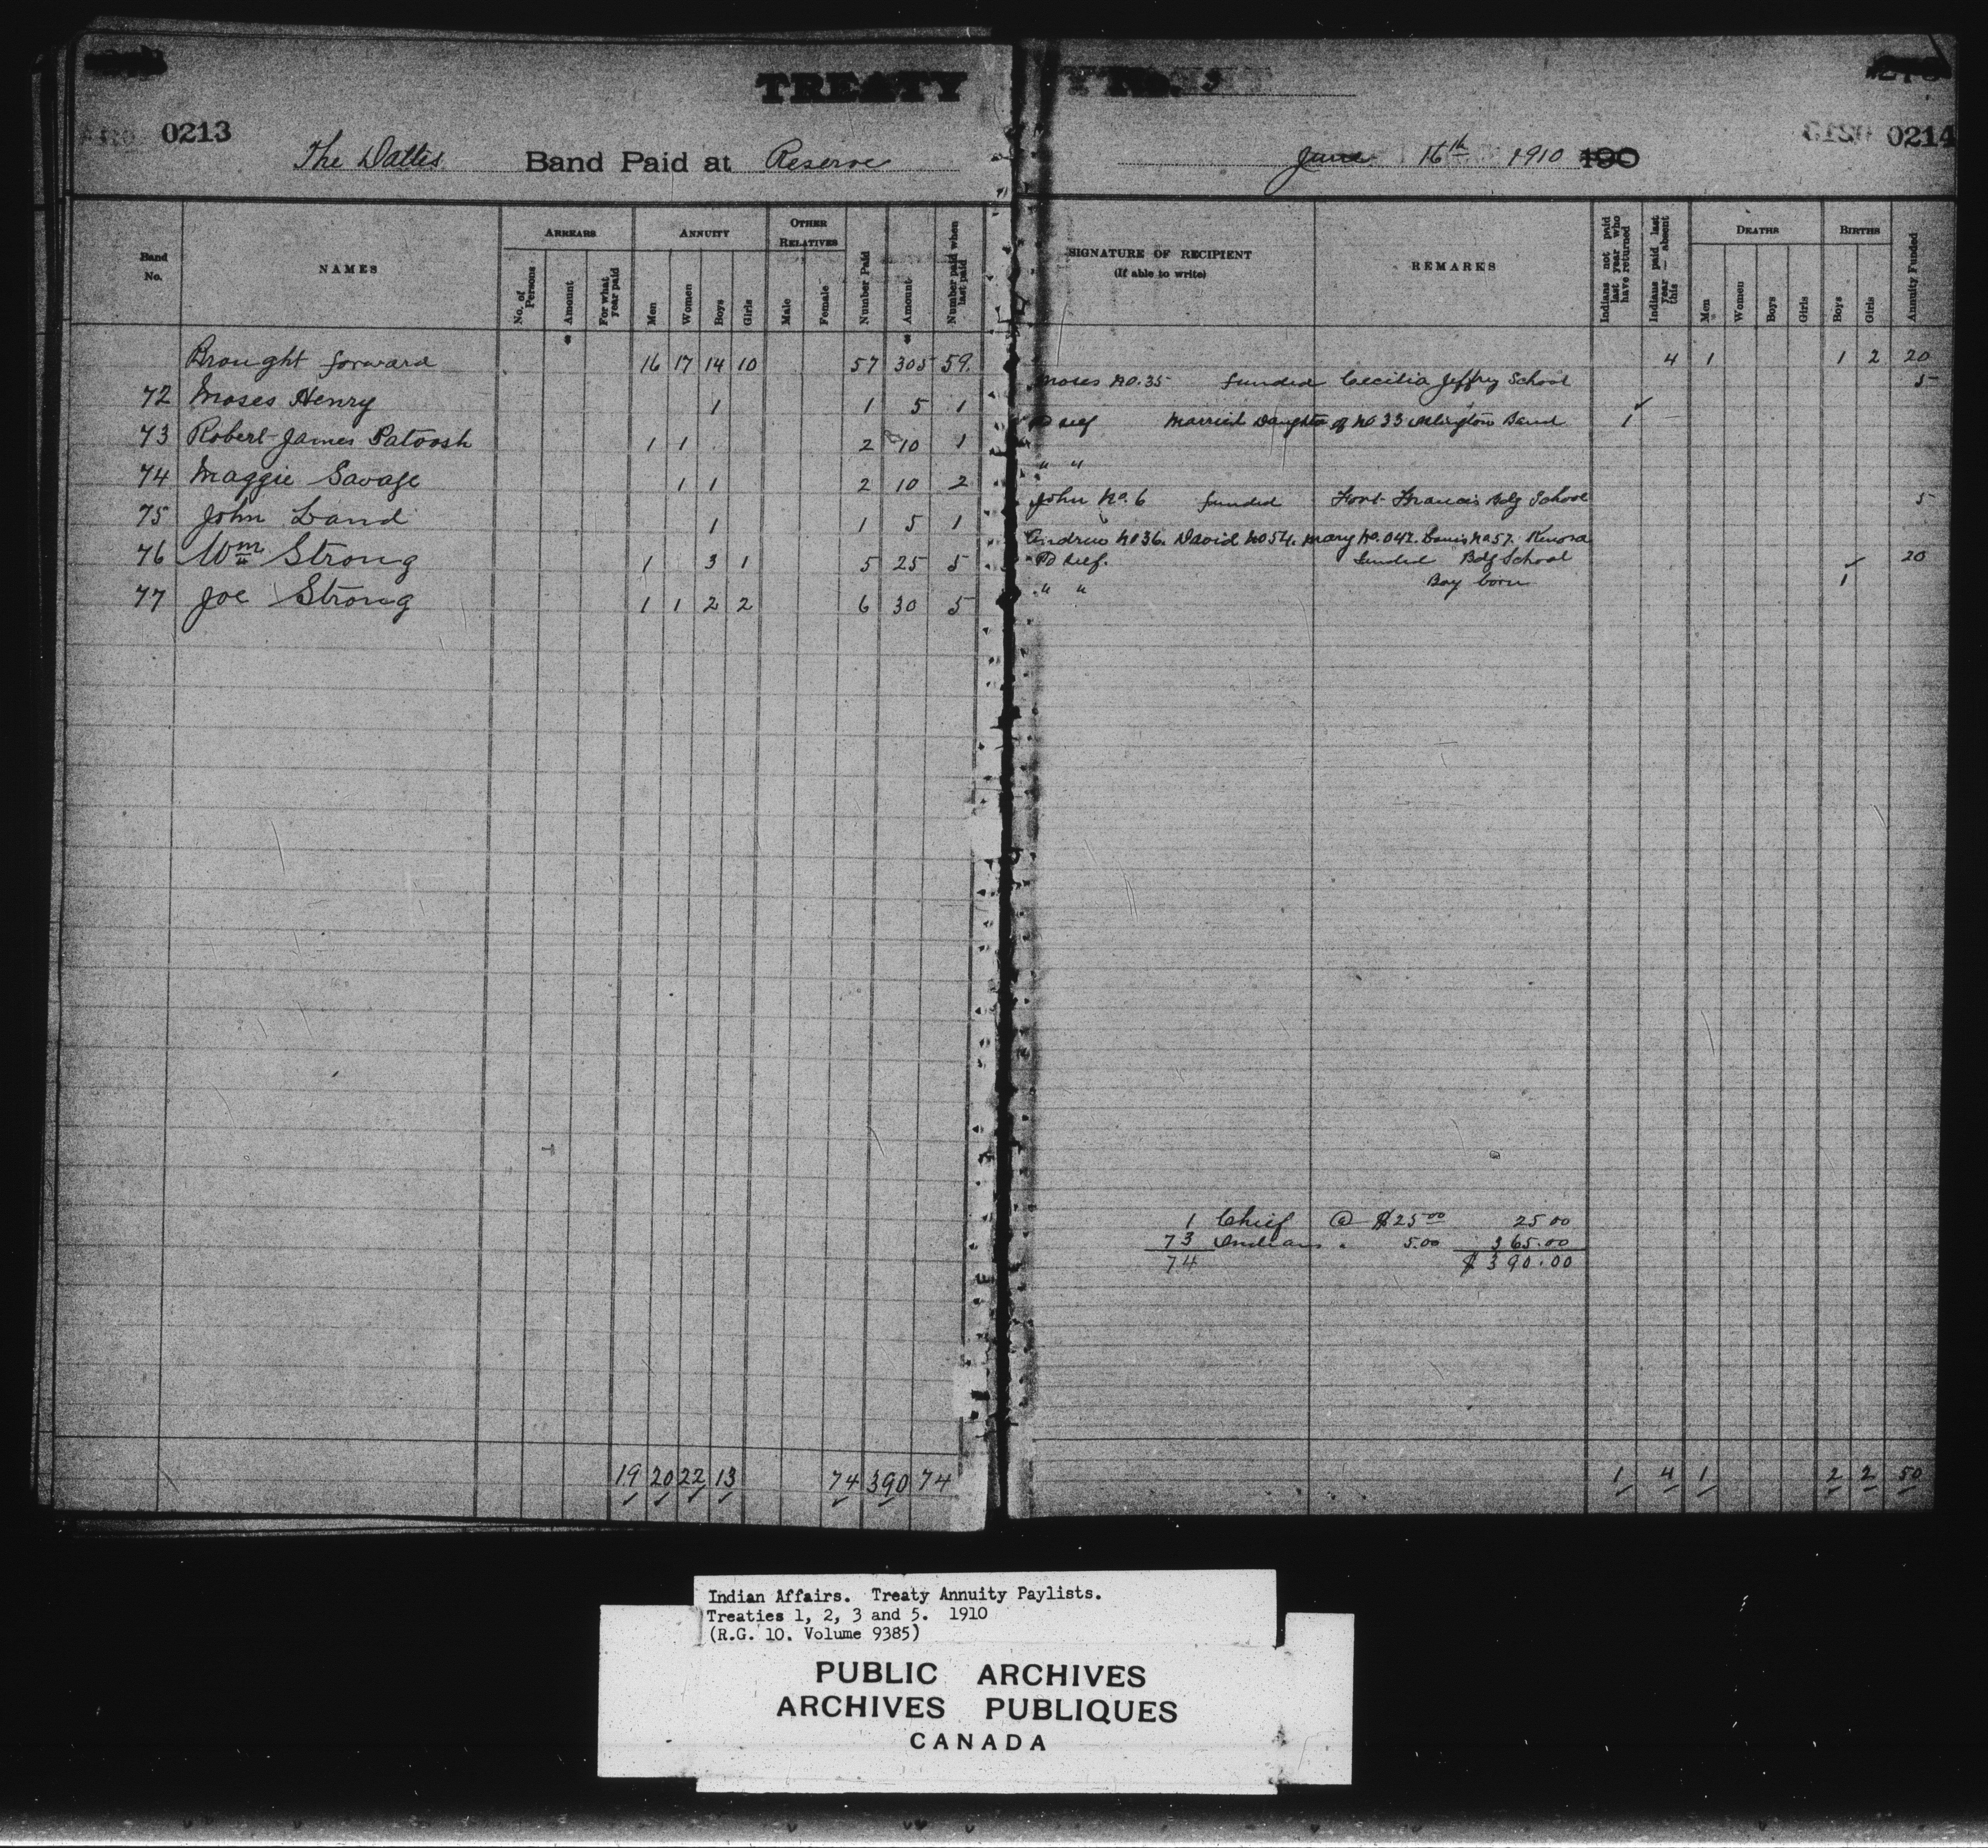 TREATY No. 3
0213
0214
The Dalles Band Paid at Reserve
June 16th 1910 190
Band No.
NAMES
ARREARS
No. of Persons
Amount
For what year paid
ANNUITY
Men
Women
Boys
Girls
OTHER RELATIVES
Male
Female
Number Paid
Amount
Number paid when last paid
SIGNATURE OF RECIPIENT
(If able to write)
REMARKS
Indians not paid last year who have returned
Indians paid last year — absent this
DEATHS
Men
Women
Boys
Girls
BIRTHS
Boys
Girls
Annuity Funded
Brought forward 16 17 14 10 57 305 59 4 1 1 2 20
72 Moses Henry 1 1 5 1 Moses No. 35 funded Cecilia Jeffrey School 5
73 Robert James Patoosh 1 1 2 10 1 Pd self Married Daughter of No 33 Islington Band 1
74 Maggie Savage 1 1 2 10 2 " "
75 John Land 1 1 5 1 John No. 6 funded Fort Francis Bdg School 5
Andrew No 36. David No 54. Mary No. 042. Louis No 57. Kenora
76 Wm Strong 1 3 1 5 25 5 Pd self. funded Bdg School 20
77 Joe Strong 1 1 2 2 6 30 5 " " Boy born 1
1 Chief @ $25.00 25 00
73 Indians " 5.00 365.00
74 $390.00
19 20 22 13 74 390 74 1 4 1 2 2 50
Indian Affairs. Treaty Annuity Paylists.
Treaties 1, 2, 3 and 5. 1910
(R.G. 10. Volume 9385)
PUBLIC ARCHIVES
ARCHIVES PUBLIQUES
CANADA